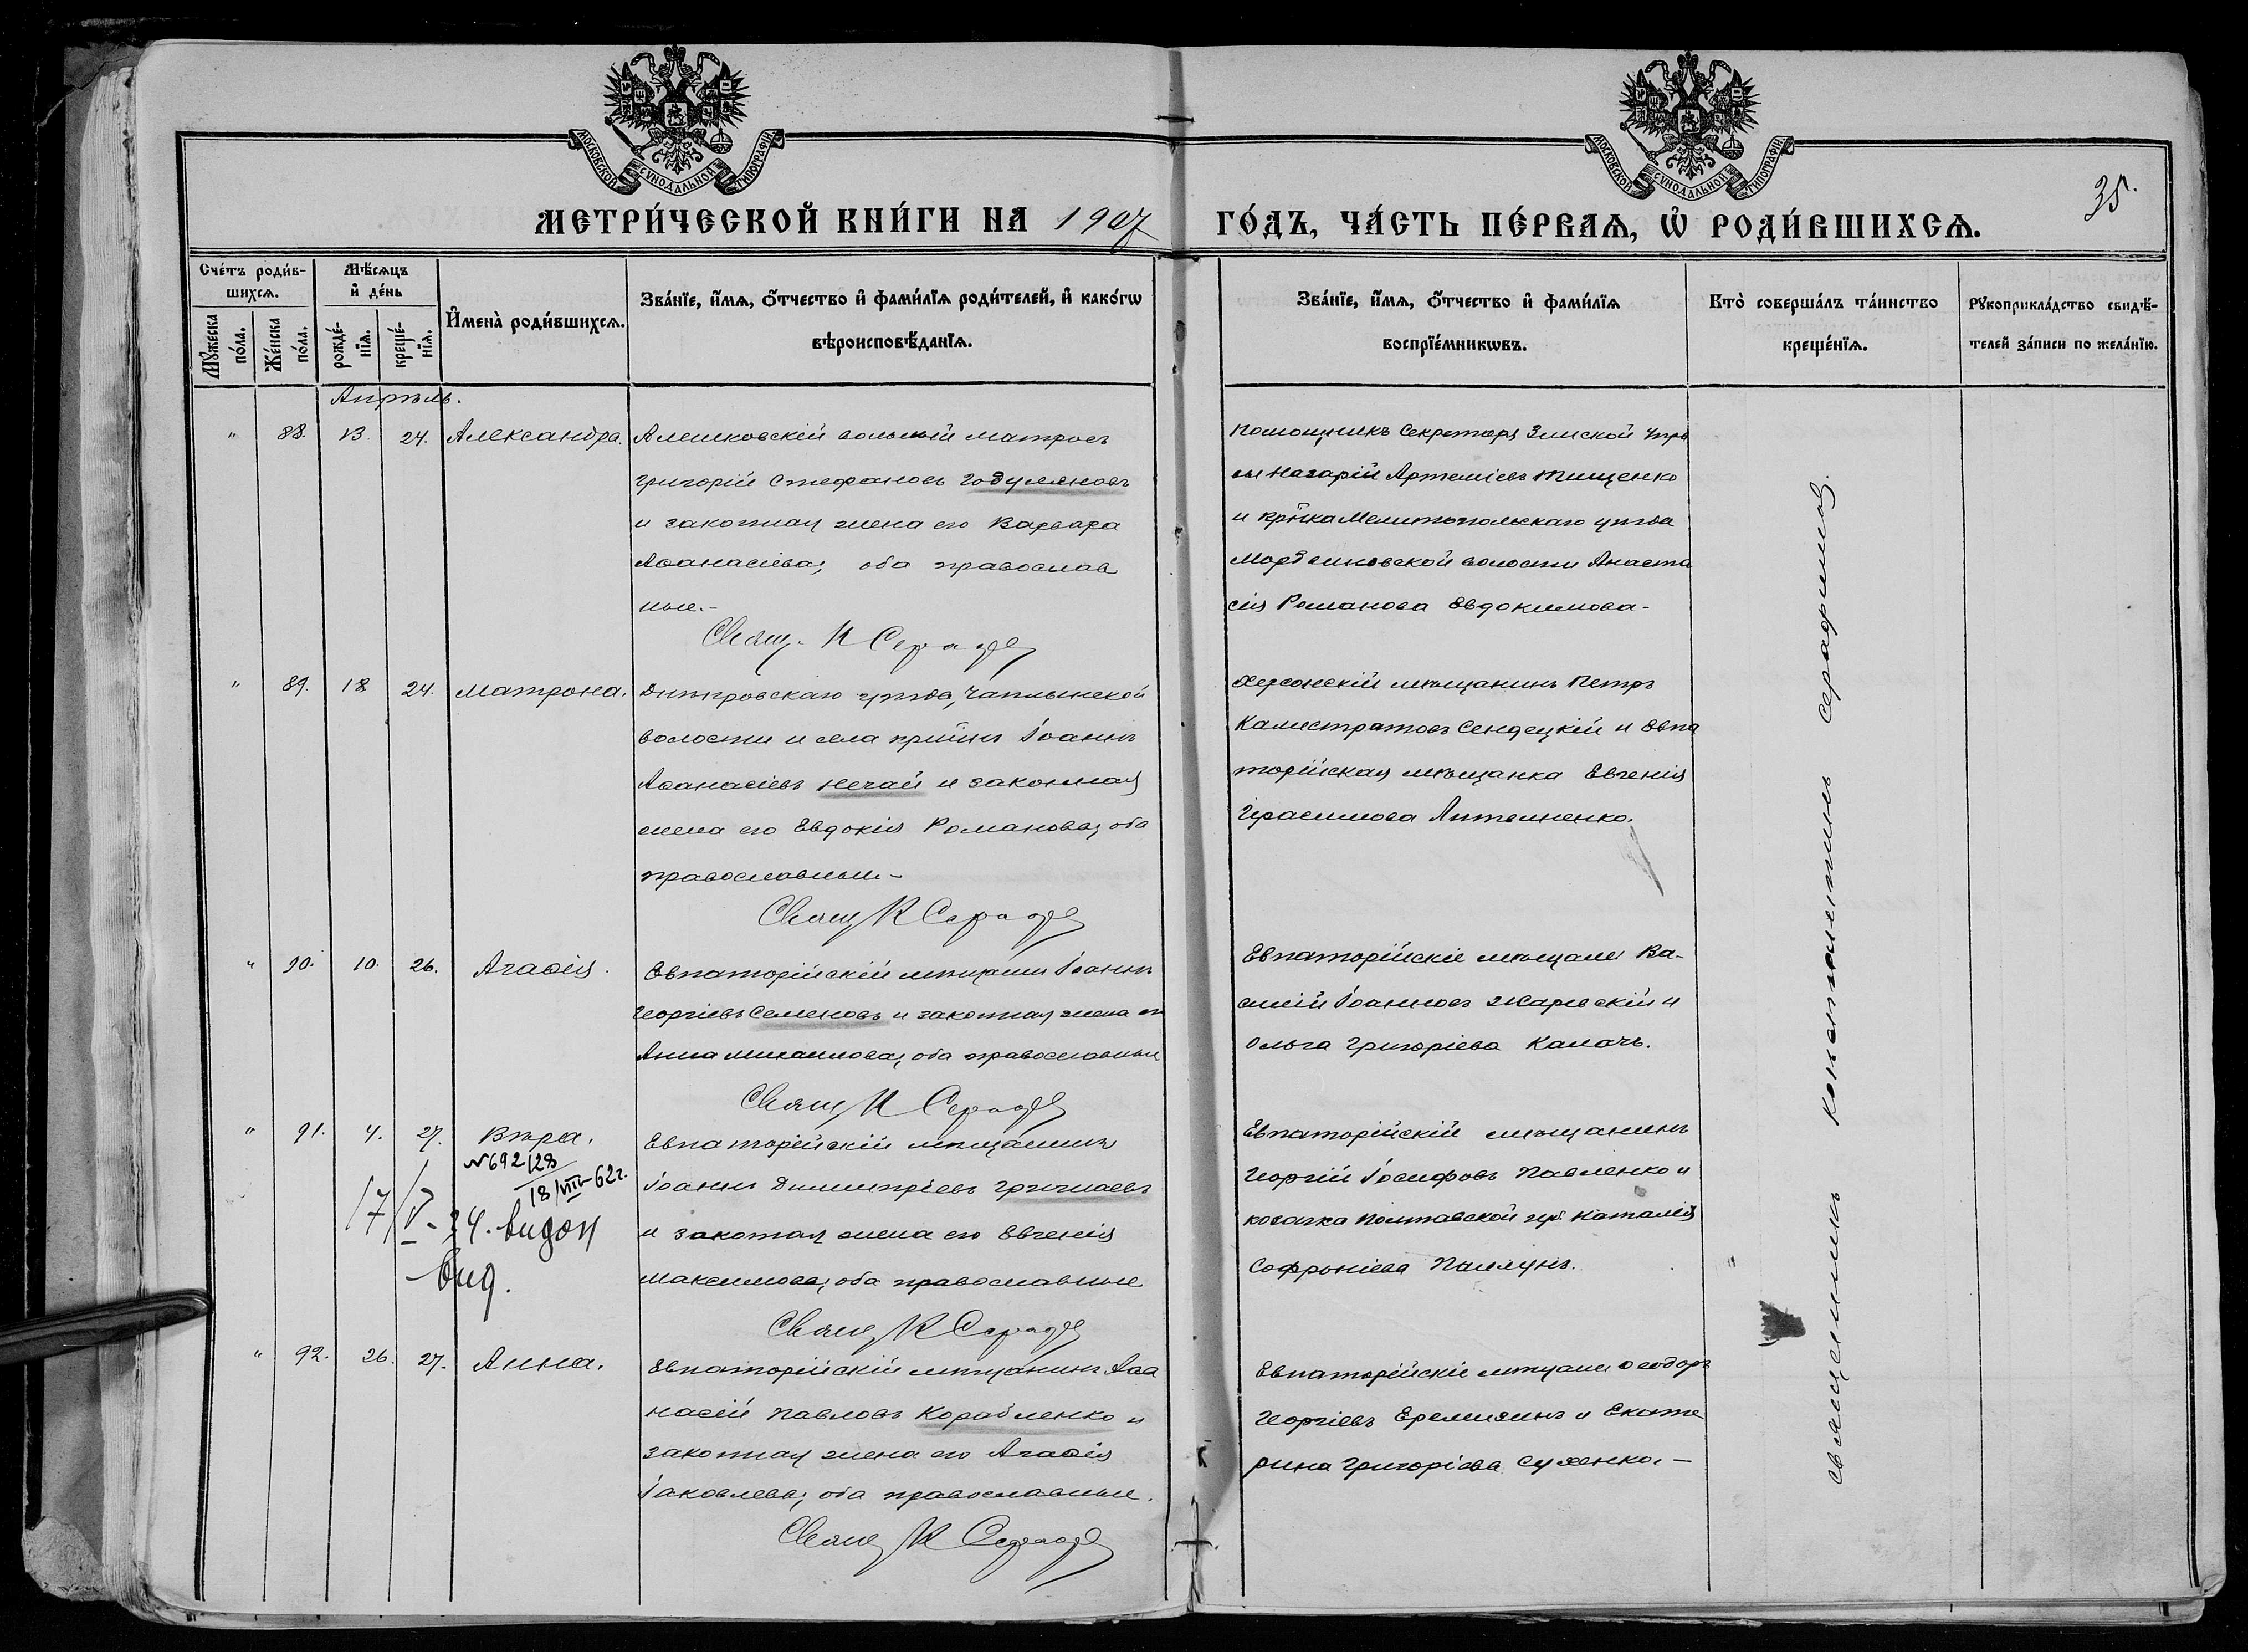 МОСКОВСКОЙ СУНОДАЛЬНОЙ ТИПОГРАФІИ
МОСКОВСКОЙ СУНОДАЛЬНОЙ ТИПОГРАФІИ
35.
МЕТРИ́ЧЕСКОЙ КНИ́ГИ НА 1907 ГО́ДЪ, ЧА́СТЬ ПЕ́РВАѦ, Ѡ҆ РОДИ́ВШИХСѦ.
Сче́тъ роди́в-
шихсѧ.
Мѣ́сѧцъ
и҆ де́нь
Мꙋ́жеска
по́ла.
Же́нска
по́ла.
рожде́-
нїѧ.
креще́-
нїѧ.
И҆мена̀ роди́вшихсѧ.
Зва́нїе, и҆́мѧ, ѻ҆́тчество и҆ фами́лїѧ роди́телей, и҆ како́гѡ
вѣроисповѣ́данїѧ.
Зва́нїе, и҆́мѧ, ѻ҆́тчество и҆ фами́лїѧ
воспрїе́мникѡвъ.
Кто̀ соверша́лъ та́инство
креще́нїѧ.
Рꙋкоприкла́дство свидѣ́-
телей за́писи по жела́нїю.
Апрѣль.
" 88. 13. 24. Александра.
Алешковскій вольный матросъ
Григорій Стефановъ Годуляновъ
и законная жена его Варвара
Аѳанасіева; оба православ
ные.-
Свящ. К Сераф
Помощникъ Секретаря Земской Упра
вы Назарій Артеміевъ Тищенко
и кр-нка Мелитопольскаго уѣзда
Мордвиновской волости Анаста
сія Романова Евдокимова-
" 89. 18 24. Матрона.
Днѣпровскаго уѣзда, Чаплынской
волости и села кр-нинъ Іоаннъ
Аѳанасіевъ Нечай и законная
жена его Евдокія Романова; оба
православные-
Свящ К Сераф
Херсонскій мѣщанинъ Петръ
Калистратовъ Сендецкій и Евпа
торійская мѣщанка Евгенія
Герасимова
" 90. 10. 26. Агаѳія.
Евпаторійскій мѣщанин Іоаннъ
Георгіевъ Семеновъ и законная жена его
Анна Михаилова; оба православные
Свящ К Сераф
Евпаторійскіе мѣщане Ва-
силій Іоанновъ Жаревскій и
Ольга Григоріева Калачъ.
" 91. 4. 27. Вѣра.
№692/28
18/VIII-62г.
17/V-34. видан
вид.
Евпаторійскій мѣщанинъ
Іоаннъ Димитріевъ
и законная жена его Евгенія
Максимова; оба православные
Свящ К Сераф
Евпаторійскій мѣщанинъ
Георгій Іосифовъ Павленко и
козачка Полтавской губ. Наталія
Софроніева
" 92. 26. 27. Анна.
Евпаторійскій мѣщанинъ Аѳа
насій Павловъ Корабленко и
законная жена его Агаѳія
Іаковлева; оба православные.
Свящ К Сераф
Евпаторійскіе мѣщане Ѳеодоръ
Георгіевъ Еремизинъ и Екате
рина Григоріева Сухенко.-
Священникъ Константинъ Серафимовъ.